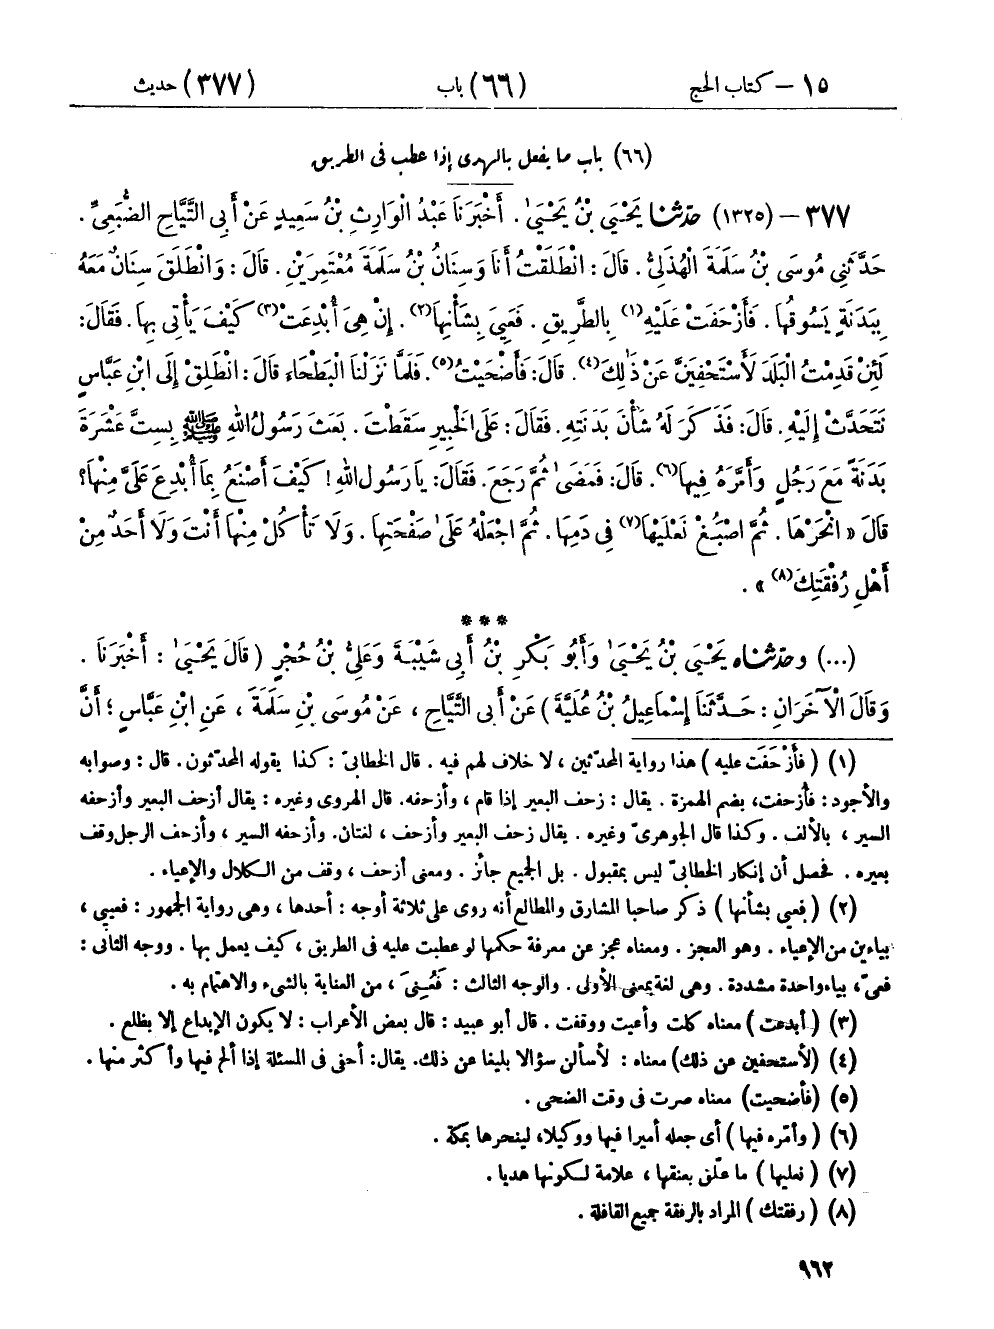 ١٥ – كتاب الحج (٦٦) باب (٣٧٧) حديث
(٦٦) باب ما يفعل بالهدى إذا عطب فى الطريق
٣٧٧ – (١٣٢٥) حَدَّثَنَا يَحْيَى بْنُ يَحْيَىٰ . أَخْبَرَنَا عَبْدُ الْوَارِثِ بْنُ سَعِيدٍ عَنْ أَبِى التَّيَّاحِ الضُّبَعِىِّ .
حَدَّثَنِي مُوسَى بْنُ سَلَمَةَ الْهُذَلِىُّ . قَالَ : انْطَلَقْتُ أَنَا وَسِنَانُ بْنُ سَلَمَةَ مُعْتَمِرَيْنِ . قَالَ : وَانْطَلَقَ سِنَانٌ مَعَهُ
بِبَدَنَةٍ يَسُوقُهَا . فَأَزْحَفَتْ عَلَيْهِ(١) بِالطَّرِيقِ . فَعَيِيَ بِشَأْنِهَا(٢) . إِنْ هِىَ أُبْدِعَتْ(٣) كَيْفَ يَأْتِى بِهَا . فَقَالَ :
لَئِنْ قَدِمْتُ الْبَلَدَ لَأَسْتَحْفِيَنَّ عَنْ ذَٰلِكَ(٤). قَالَ : فَأَضْحَيْتُ(٥). فَلَمَّا نَزَلْنَا الْبَطْحَاءَ قَالَ : انْطَلِقْ إِلَى ابْنِ عَبَّاسٍ
نَتَحَدَّثْ إِلَيْهِ . قَالَ : فَذَكَرَ لَهُ شَأْنَ بَدَنَتِهِ . فَقَالَ : عَلَى الْخَبِيرِ سَقَطْتَ . بَعَثَ رَسُولُ اللهِ ﷺ بِسِتَّ عَشْرَةَ
بَدَنَةً مَعَ رَجُلٍ وَأَمَّرَهُ فِيهَا(٦). قَالَ : فَمَضَىٰ ثُمَّ رَجَعَ . فَقَالَ : يَا رَسُولَ اللهِ ! كَيْفَ أَصْنَعُ بِمَا أُبْدِعَ عَلَىَّ مِنْهَا؟
قَالَ « انْحَرْهَا . ثُمَّ اصْبُغْ نَعْلَيْهَا(٧) فِى دَمِهَا . ثُمَّ اجْعَلْهُ عَلَىٰ صَفْحَتِهَا . وَلَا تَأْكُلْ مِنْهَا أَنْتَ وَلَا أَحَدٌ مِنْ
أَهْلِ رُفْقَتِكَ(٨) » .
***
(...) وحَدَّثَنَاه يَحْيَىٰ بْنُ يَحْيَىٰ وَأَبُو بَكْرِ بْنُ أَبِي شَيْبَةَ وَعَلِىُّ بْنُ حُجْرٍ ( قَالَ يَحْيَىٰ : أَخْبَرَنَا .
وَقَالَ الْآخَرَانِ : حَدَّثَنَا إِسْمَاعِيلُ بْنُ عُلَيَّةَ ) عَنْ أَبِى التَّيَّاحِ ، عَنْ مُوسَى بْنِ سَلَمَةَ ، عَنِ ابْنِ عَبَّاسٍ ؛ أَنَّ
(١) ( فأَزْحَفَت عليه ) هذا رواية المحدّثين ، لا خلاف لهم فيه . قال الخطابىّ : كذا يقوله المحدّثون . قال : وصوابه
والأجود : فأُزحفت، بضم الهمزة . يقال : زحف البعير إذا قام ، وأزحفه. قال الهروى وغيره : يقال أزحف البعير وأزحفه
السير ، بالألف . وكذا قال الجوهرىّ وغيره . يقال زحف البعير وأزحف ، لغتان. وأزحفه السير ، وأزحف الرجل وقف
بعيره . فحصل أن إنكار الخطابىّ ليس بمقبول . بل الجميع جائز . ومعنى أزحف ، وقف من الكلال والإعياء .
(٢) ( فعى بشأنها ) ذكر صاحبا المشارق والمطالع أنه روى على ثلاثة أوجه : أحدها ، وهى رواية الجمهور : فعيي ،
بياءين من الإعياء . وهو العجز . ومعناه عجز عن معرفة حكمها لو عطبت عليه فى الطريق ، كيف يعمل بها . ووجه الثانى :
فعىّ ، بياء واحدة مشددة . وهى لغة بمعنى الأولى . والوجه الثالث : فَعُنِىَ ، من العناية بالشىء والاهتمام به .
(٣) ( أبدعت ) معناه كلت وأعيت ووقفت . قال أبو عبيد : قال بعض الأعراب : لا يكون الإبداع إلا بظلع .
(٤) (لأستحفين عن ذلك) معناه : لأسألن سؤالا بليغا عن ذلك. يقال: أحفى فى المسئلة إذا ألح فيها وأكثر منها .
(٥) (فأضحيت) معناه صرت فى وقت الضحى .
(٦) ( وأمّره فيها ) أى جعله أميرا فيها ووكيلا، لينحرها بمكة .
(٧) ( نعليها ) ما علّق بعنقها ، علامة لكونها هديا .
(٨) ( رفقتك ) المراد بالرفقة جميع القافلة .
٩٦٢